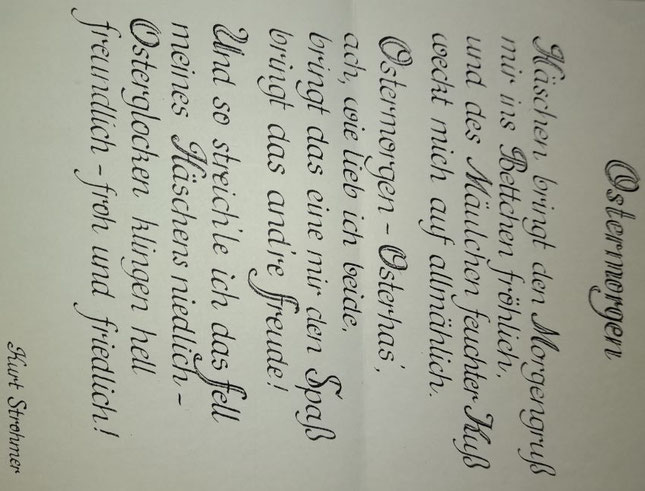 Ostermorgen
Häschen bringt den Morgengruß
mir ins Bettchen fröhlich,
und des Mäulchen feuchter Kuß
weckt mich auf allmählich.
Ostermorgen - Osterhas',
ach, wie lieb ich beide,
bringt das eine mir den Spaß
bringt das and're Freude!
Und so streich'le ich das Fell
meines Häschens niedlich -
Osterglocken klingen hell
freundlich - froh und friedlich!
Kurt Strohmer